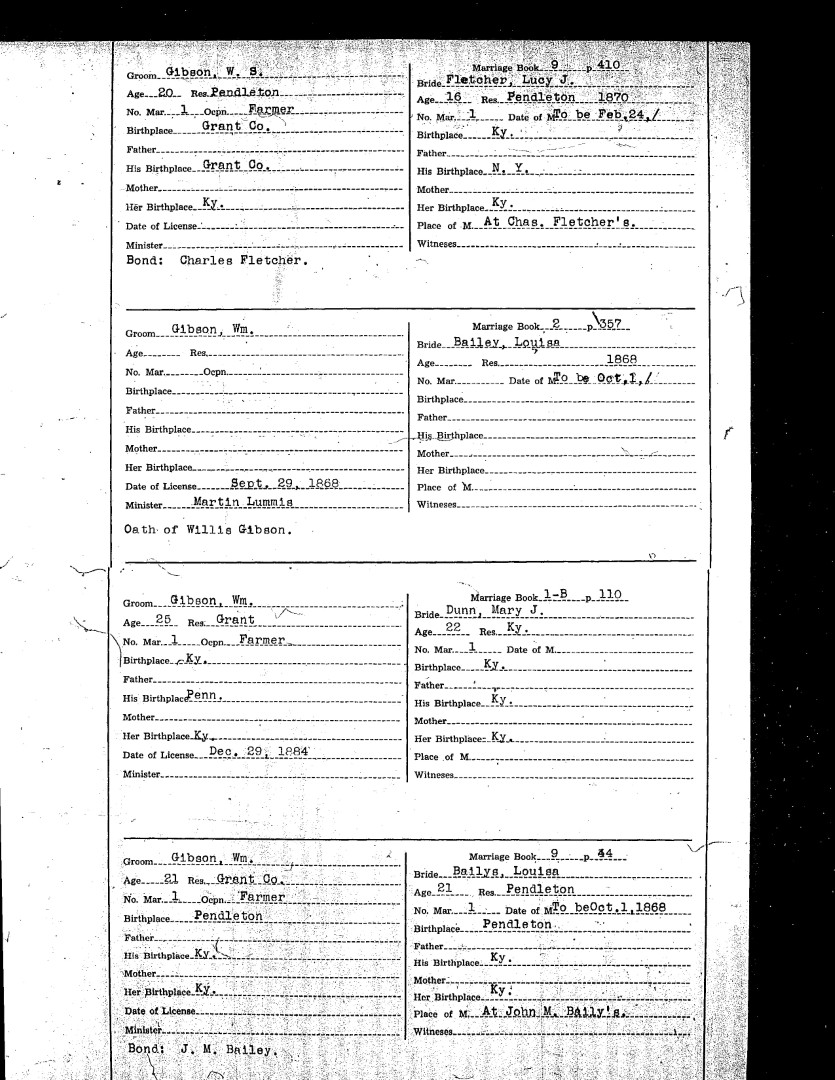 Groom Gibson, W. S.
Age 20 Res. Pendleton
No. Mar. 1 Ocpn. Farmer
Birthplace Grant Co.
Father
His Birthplace Grant Co.
Mother
Her Birthplace Ky.
Date of License
Minister
Bond: Charles Fletcher.
Marriage Book 9 p. 410
Bride Fletcher, Lucy J.
Age 16 Res. Pendleton 1870
No. Mar. 1 Date of M. To be Feb,24,/
Birthplace Ky.
Father
His Birthplace N. Y.
Mother
Her Birthplace Ky.
Place of M. At Chas. Fletcher's.
Witneses
Groom Gibson, Wm.
Age Res.
No. Mar. Ocpn.
Birthplace
Father
His Birthplace
Mother
Her Birthplace
Date of License Sept. 29, 1868
Minister Martin Lummis
Oath of Willis Gibson.
Marriage Book 2 p. 357
Bride Bailey, Louisa
Age Res. 1868
No. Mar. Date of M. To be Oct,1,/
Birthplace
Father
His Birthplace
Mother
Her Birthplace
Place of M.
Witneses
Groom Gibson, Wm.
Age 25 Res. Grant
No. Mar. 1 Ocpn. Farmer
Birthplace Ky.
Father
His Birthplace Penn.
Mother
Her Birthplace Ky.
Date of License Dec. 29, 1884
Minister
Marriage Book 1-B p. 110
Bride Dunn, Mary J.
Age 22 Res. Ky.
No. Mar. 1 Date of M.
Birthplace Ky.
Father
His Birthplace Ky.
Mother
Her Birthplace Ky.
Place of M.
Witneses
Groom Gibson, Wm.
Age 21 Res. Grant Co.
No. Mar. 1 Ocpn. Farmer
Birthplace Pendleton
Father
His Birthplace Ky.
Mother
Her Birthplace Ky.
Date of License
Minister
Bond: J. M. Bailey.
Marriage Book 9 p. 44
Bride Bailys, Louisa
Age 21 Res. Pendleton
No. Mar. 1 Date of M. To beOct,1,1868
Birthplace Pendleton
Father
His Birthplace Ky.
Mother
Her Birthplace Ky.
Place of M. At John M. Baily's.
Witneses